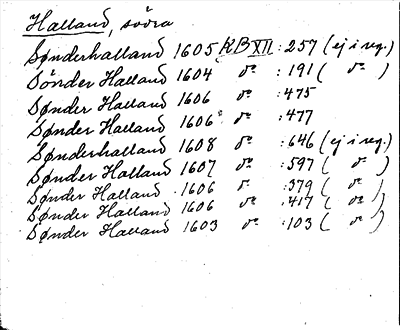 Halland, södra
Sønderhalland 1605 KB XII :257 (ej i reg.)
Sönder Halland 1604 d:o :191 ( d:o )
Sønder Halland 1606 d:o :475
Sønder Halland 1606 d:o :477
Sønderhalland 1608 d:o :646 (ej i reg.)
Sønder Halland 1607 d:o :597 ( d:o )
Sønder Halland 1606 d:o :379 ( d:o )
Sønder Halland 1606 d:o :417 ( d:o )
Sønder Halland 1603 d:o :103 ( d:o )